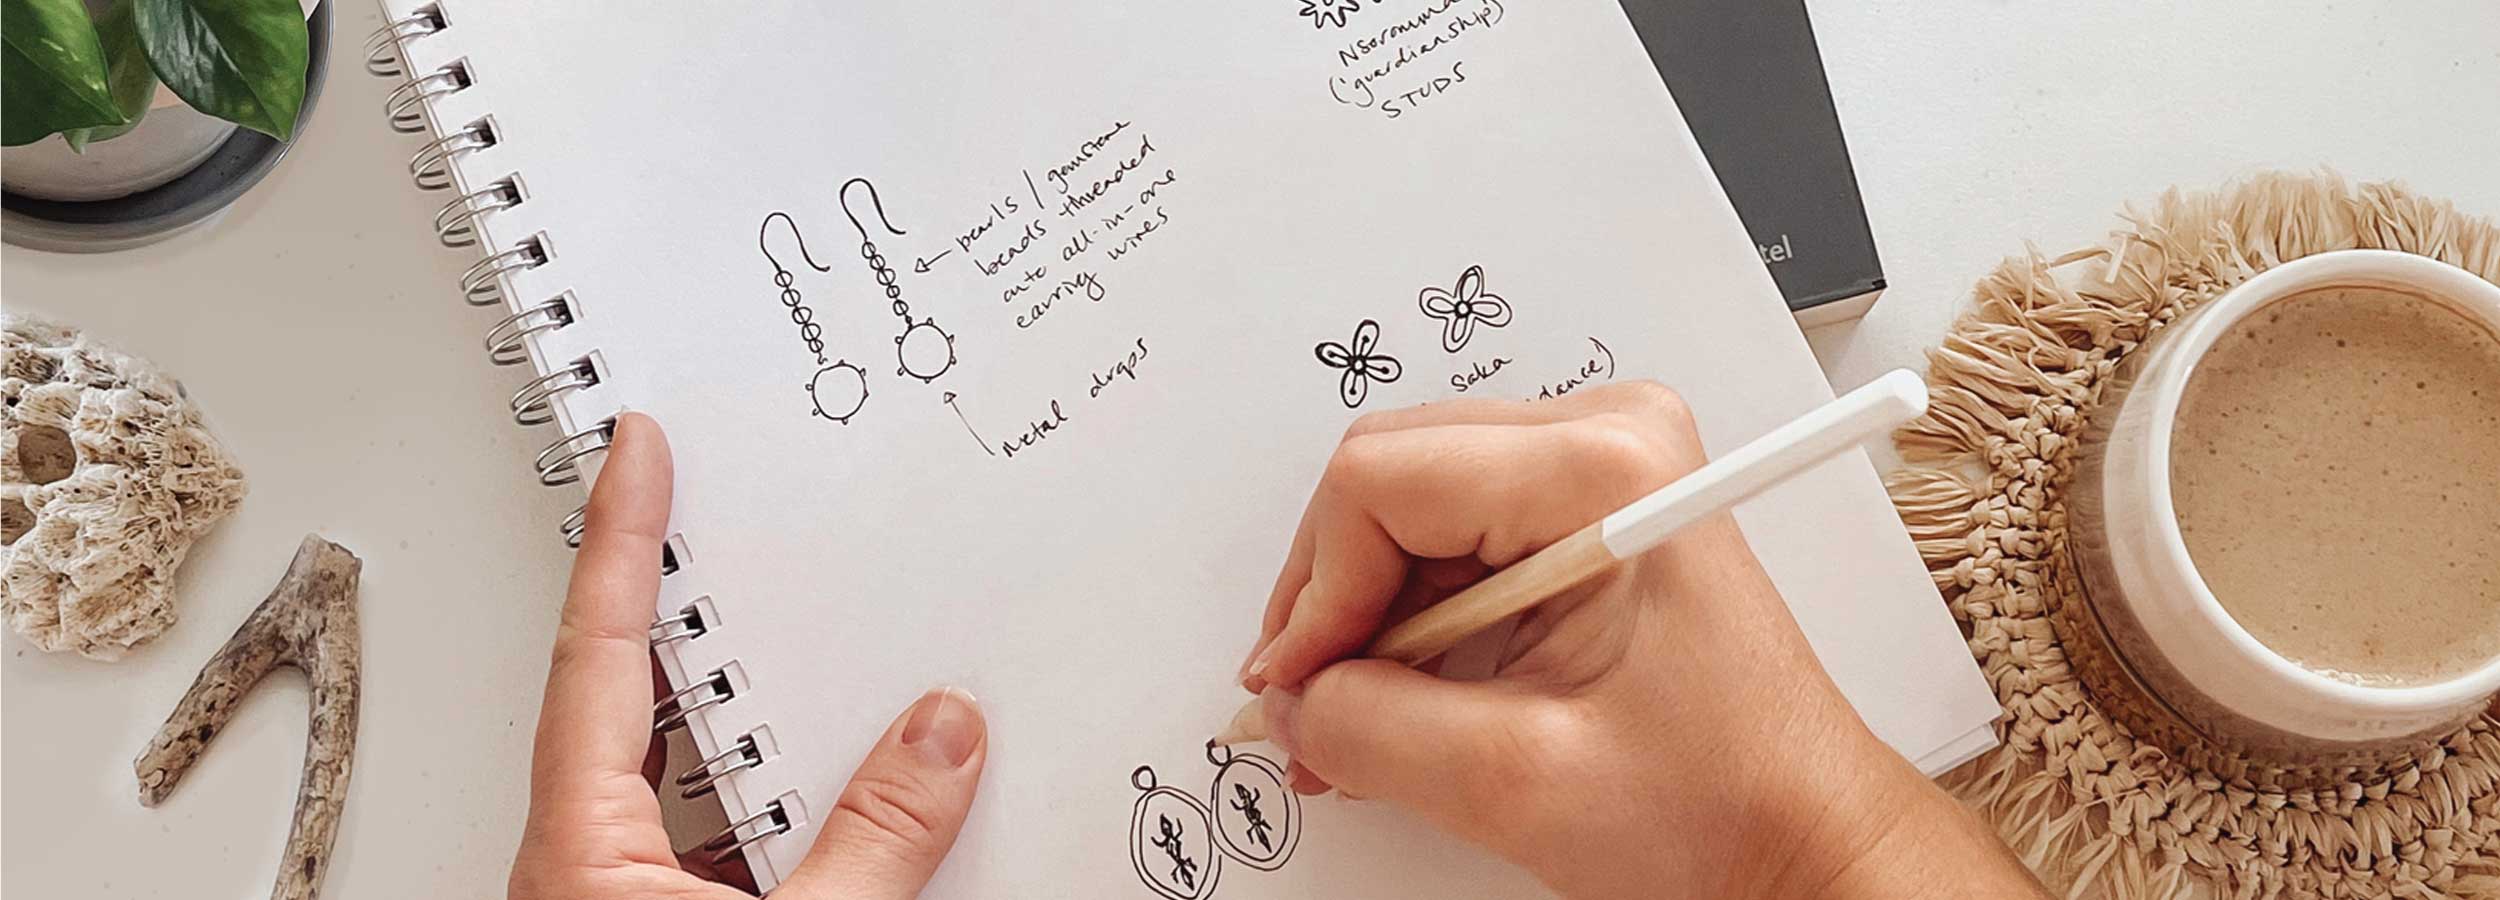 Nsoromma
('guardianship')
STUDS
pearls / gemstone
beads threaded
onto all-in-one
earring wires
metal drops
Saka
dance)
tel